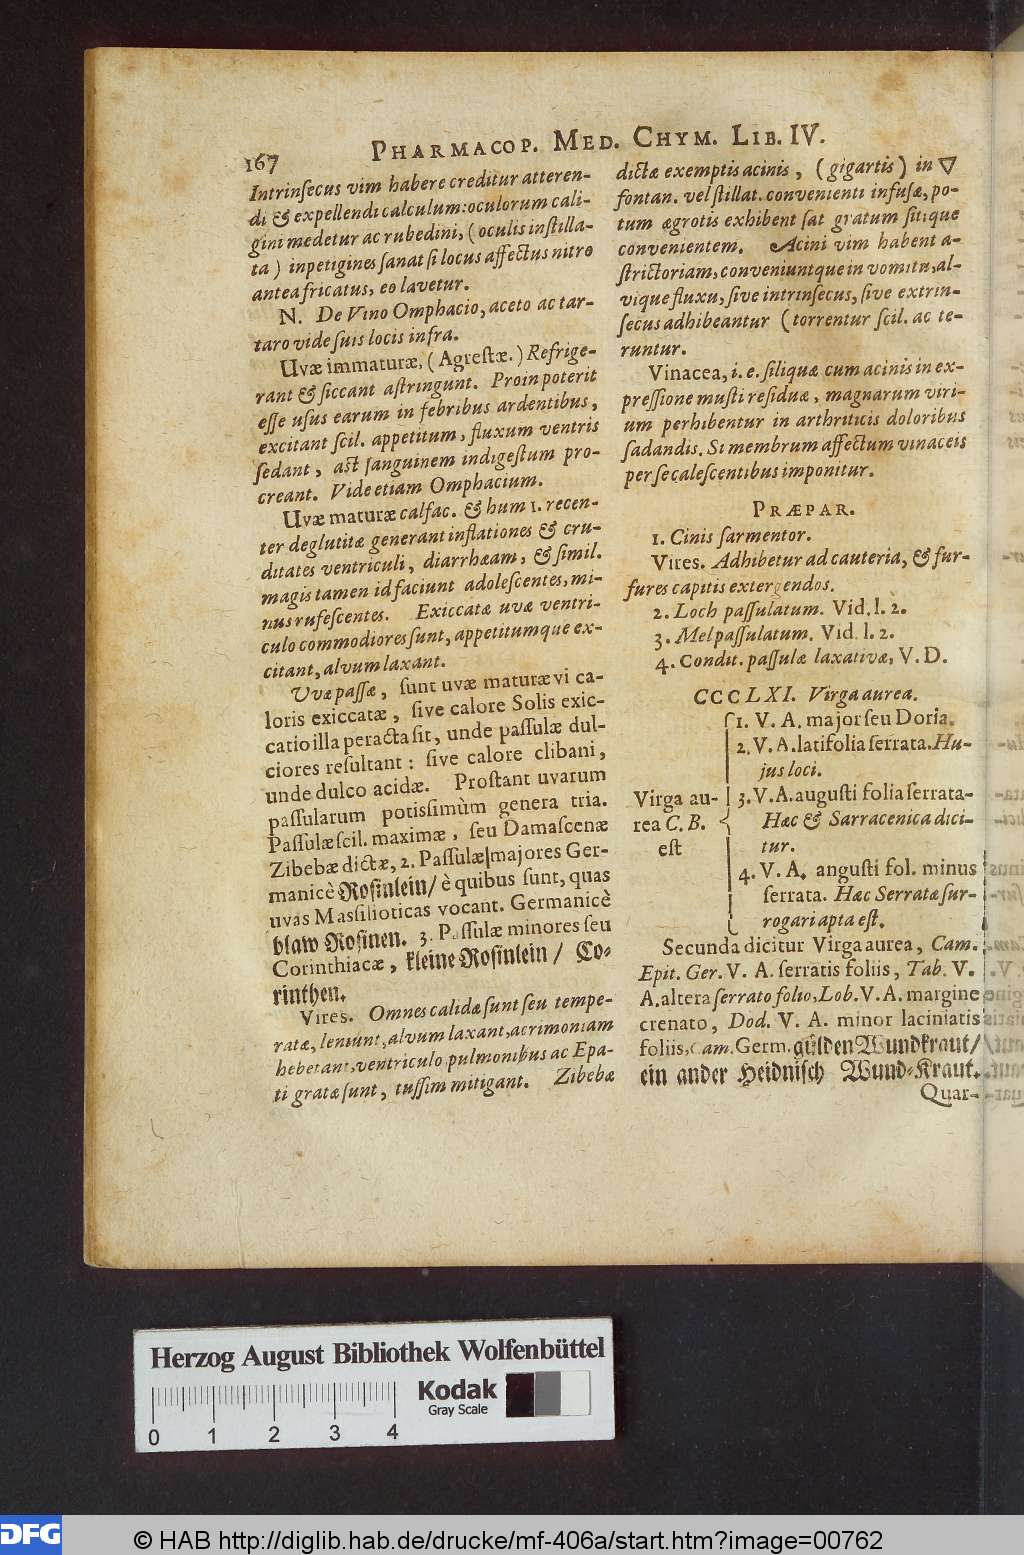 167
PHARMACOP. MED. CHYM. LIB. IV.
Intrinſecus vim habere creditur atteren-
di & expellendi calculum: oculorum cali-
gini medetur ac rubedini, (oculis inſtilla-
ta) inpetigines ſanat ſi locus affectus nitro
antea fricatus, eo lavetur.
N. De Vino Omphacio, aceto ac tar-
taro vide ſuis locis infra.
Uvæ immaturæ, (Agreſtæ.) Refrige-
rant & ſiccant aſtringunt. Proin poterit
eſſe uſus earum in febribus ardentibus,
excitant ſcil. appetitum, fluxum ventris
ſedant, aſt ſanguinem indigeſtum pro-
creant. Vide etiam Omphacium.
Uvæ maturæ calfac. & hum 1. recen-
ter deglutitæ generant inflationes & cru-
ditates ventriculi, diarrhæam, & ſimil.
magis tamen id faciunt adoleſcentes, mi-
nus rufeſcentes. Exiccatæ uvæ ventri-
culo commodiores ſunt, appetitumque ex-
citant, alvum laxant.
Uvæ paſſæ, ſunt uvæ maturæ vi ca-
loris exiccatæ, ſive calore Solis exic-
catio illa peracta ſit, unde paſſulæ dul-
ciores reſultant: ſive calore clibani,
unde dulco acidæ. Proſtant uvarum
paſſularum potiſſimùm genera tria.
Paſſulæ ſcil. maximæ, ſeu Damaſcenæ
Zibebæ dictæ, 2. Paſſulæ majores Ger-
manicè Roſinlein/ è quibus ſunt, quas
uvas Maſſilioticas vocant. Germanicè
blaw Roſinen. 3. Paſſulæ minores ſeu
Corinthiacæ, kleine Roſinlein / Co-
rinthen.
Vires. Omnes calidæ ſunt ſeu tempe-
ratæ, leniunt, alvum laxant, acrimoniam
hebetant, ventriculo pulmonibus ac Epa-
ti gratæ ſunt, tuſſim mitigant. Zibebæ
dictæ exemptis acinis, (gigartis) in 🜄
fontan. vel ſtillat. convenienti infuſæ, po-
tum ægrotis exhibent ſat gratum ſitique
convenientem. Acini vim habent a-
ſtrictoriam, conveniuntque in vomitu, al-
vique fluxu, ſive intrinſecus, ſive extrin-
ſecus adhibeantur (torrentur ſcil. ac te-
runtur.
Vinacea, i. e. ſiliquæ cum acinis in ex-
preſſione muſti reſiduæ, magnarum viri-
um perhibentur in arthriticis doloribus
ſadandis. Si membrum affectum vinaceis
per ſe caleſcentibus imponitur.
PRÆPAR.
1. Cinis ſarmentor.
Vires. Adhibetur ad cauteria, & fur-
fures capitis extergendos.
2. Loch paſſulatum. Vid. l. 2.
3. Mel paſſulatum. Vid. l. 2.
4. Condit. paſſulæ laxativæ, V. D.
CCCLXI. Virga aurea.
1. V. A. major ſeu Doria.
2. V. A. latifolia ſerrata. Hu-
jus loci.
Virga au- 3. V. A. auguſti folia ſerrata-
rea C. B. Hæc & Sarracenica dici-
eſt tur.
4. V. A. anguſti fol. minus
ſerrata. Hæc Serratæ ſur-
rogari apta eſt.
Secunda dicitur Virga aurea, Cam.
Epit. Ger. V. A. ſerratis foliis, Tab. V.
A. altera ſerrato folio, Lob. V. A. margine
crenato, Dod. V. A. minor laciniatis
foliis, Cam. Germ. gůlden Wundkraut/
ein ander Heidniſch Wund-Kraut.
Quar-
Herzog August Bibliothek Wolfenbüttel
Kodak
Gray Scale
0 1 2 3 4
DFG
© HAB http://diglib.hab.de/drucke/mf-406a/start.htm?image=00762